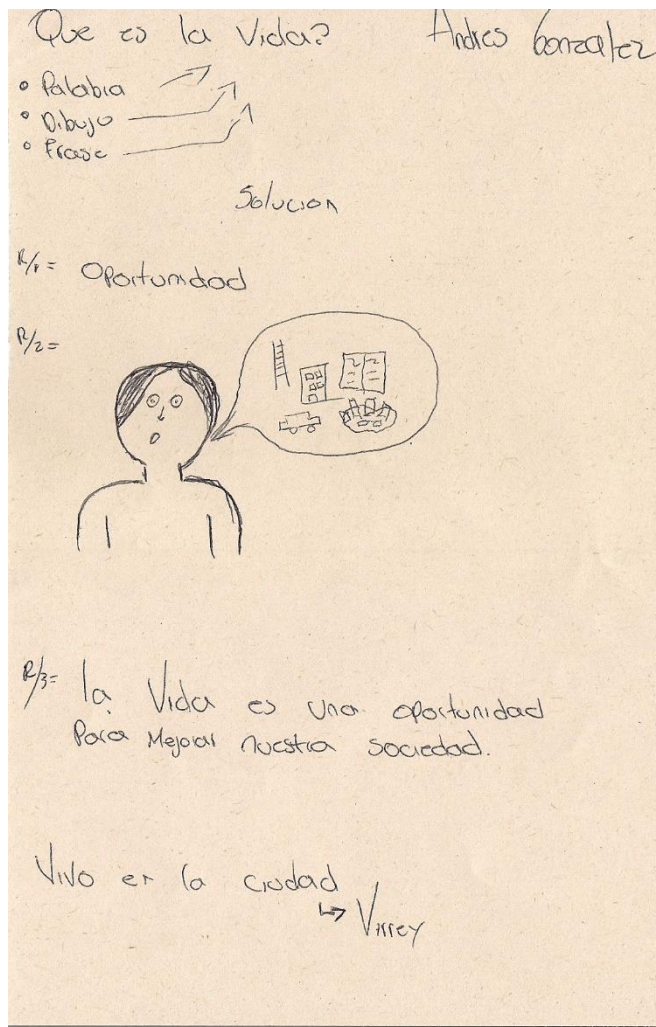 Que es la Vida? Andres Gonzalez
• Palabra
• Dibujo
• Frase
Solucion
R/1= Oportunidad
R/2=
R/3= la Vida es una oportunidad
Para Mejorar nuestra sociedad.
Vivo en la ciudad
↳ Virrey